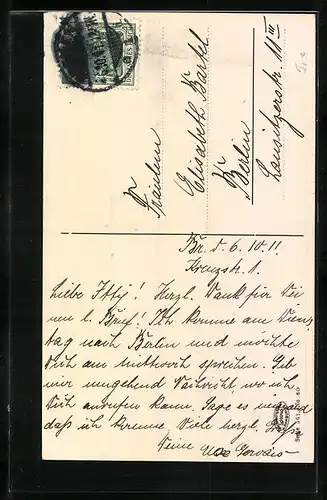 Fräulein
Elisabeth Bartel
Berlin
Lausitzerstr. 11 III
Br. d. 6.10.11.
Kreuzstr. 1.
Liebe Itty! Herzl. Dank für Dei-
nen l. Brief! Ich komme am Diens-
tag nach Berlin und möchte
Dich am Mittwoch sprechen. Gib
mir umgehend Nachricht, wo ich
Dich anrufen kann. Sage es niemand
daß ich komme. Viele herzl. Grüße
Deine